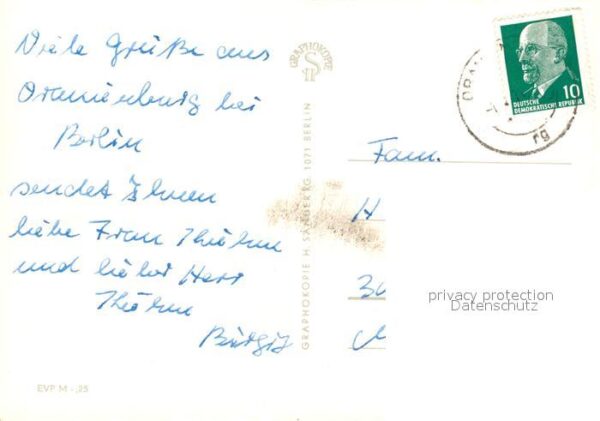 Viele Grüße aus
Oranienburg bei
Berlin
sendet Ihnen
liebe Frau Thühm
und lieber Herr
Thühm
Birgit
EVP M -,25
GRAPHOKOPIE
GRAPHOKOPIE H. SANDBERG, 1071 BERLIN
10
DEUTSCHE
DEMOKRATISCHE REPUBLIK
ORAN
rg
Fam.
H
30
privacy protection
Datenschutz